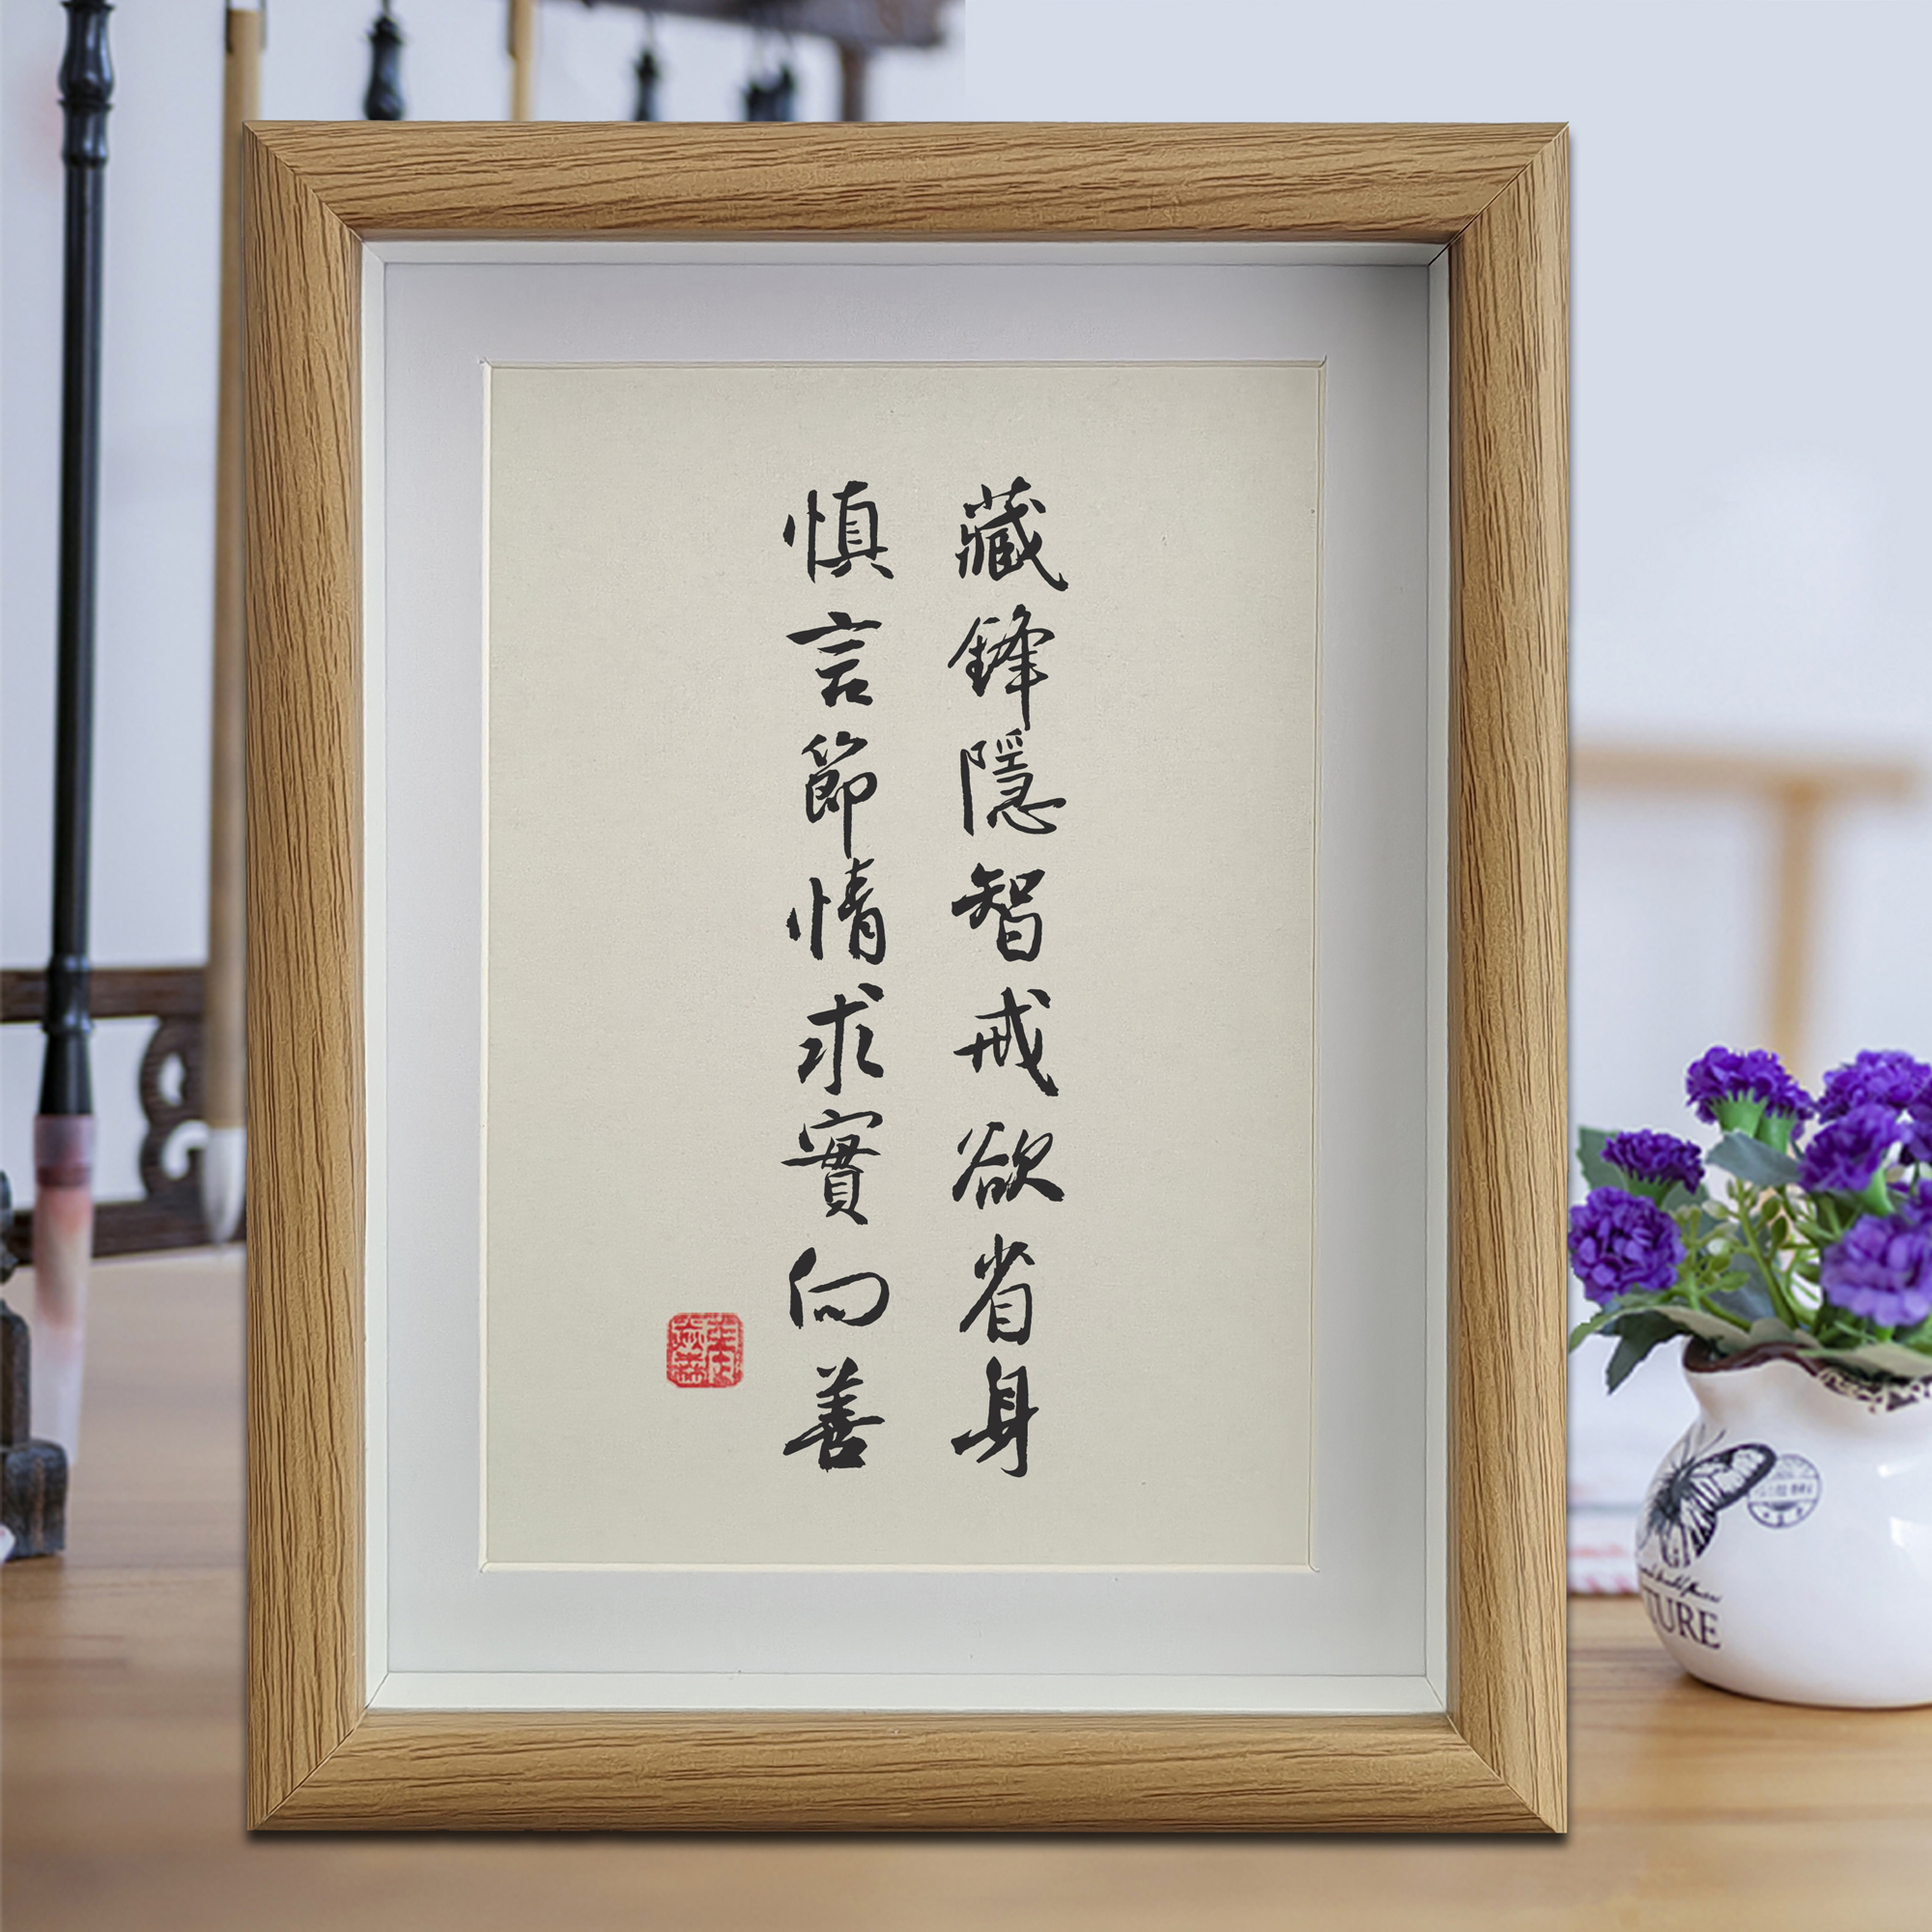 藏鋒隱智戒欲省身
慎言節情求實向善
TURE